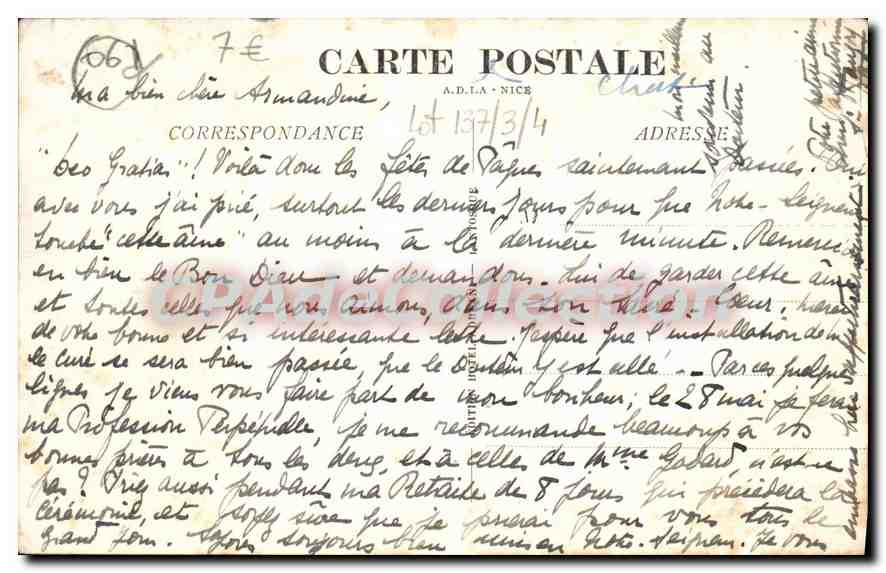 06 7€
CARTE POSTALE
Ma bien chère Armandine,
A.D.L.A - NICE
Lot 137/3/4
CORRESPONDANCE
ADRESSE
"Deo Gratias"! Voilà donc les fêtes de Pâques saintement passées. Oui
avec vous j'ai prié, surtout les derniers jours pour que Notre-Seigneur
touche "cette âme" au moins à la dernière minute. Remerci
en bien le Bon Dieu et demandons-Lui de garder cette âme
et toutes celles que nous aimons, dans son Sacré-Coeur, merci
de votre bonne et si intéressante lettre. J'espère que l'installation de M
le curé se sera bien passée, que le y est allé - Par ces quelques
lignes je viens vous faire part de mon bonheur; le 28 mai je ferai
ma Profession Perpétuelle, je me recommande beaucoup à vos
bonnes prières à tous les deux, et à celles de Mme Godard, n'est-ce
pas? Priez aussi pendant ma Retraite de 8 jours qui précèdera la
Cérémonie, et soyez sûre que je prierai pour vous tous le
Grand Jour. Soyons toujours bien unis en Notre-Seigneur. Je vous
embrasse bien
mon meilleur
souvenir au
Docteur.
Votre petite amie
CPA Collection